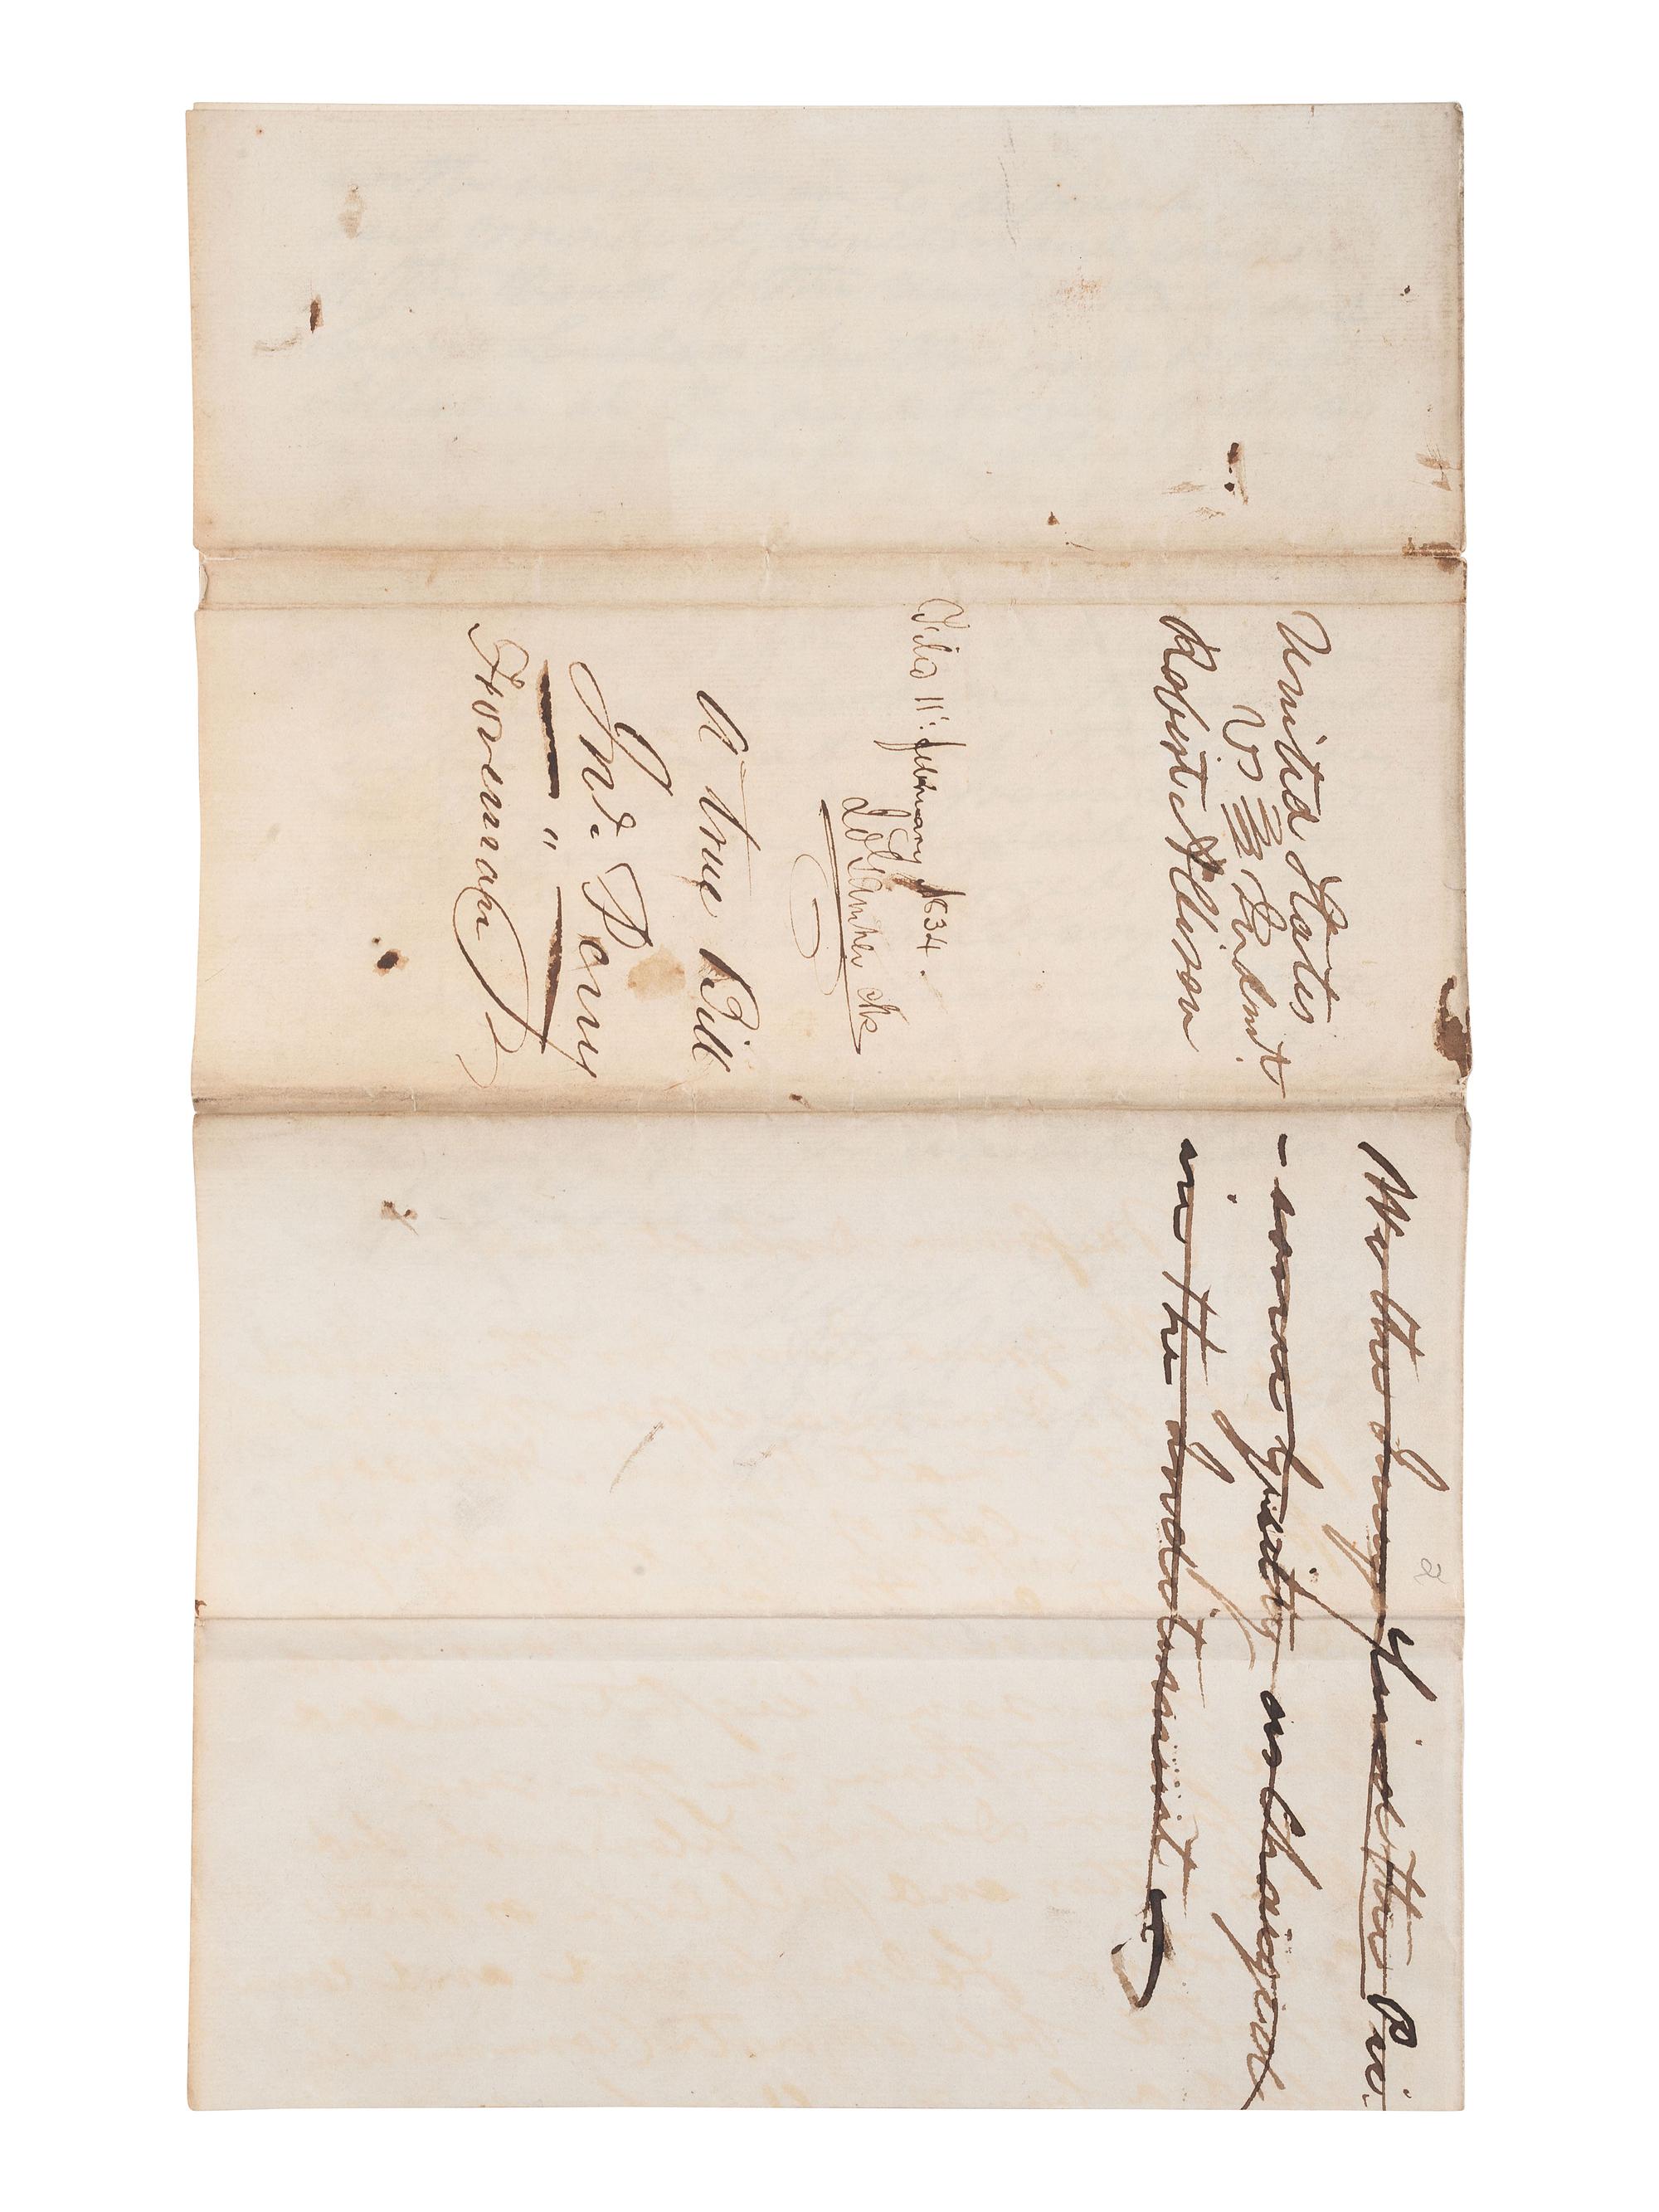 United States
vs } Indmt
Robert Allison
Filed 11th. February 1834.
Clk
A true Bill
Jno. Perry
"
Foreman
We the Jury find the Pri-
- soner guilty as charged
in the indictment
2